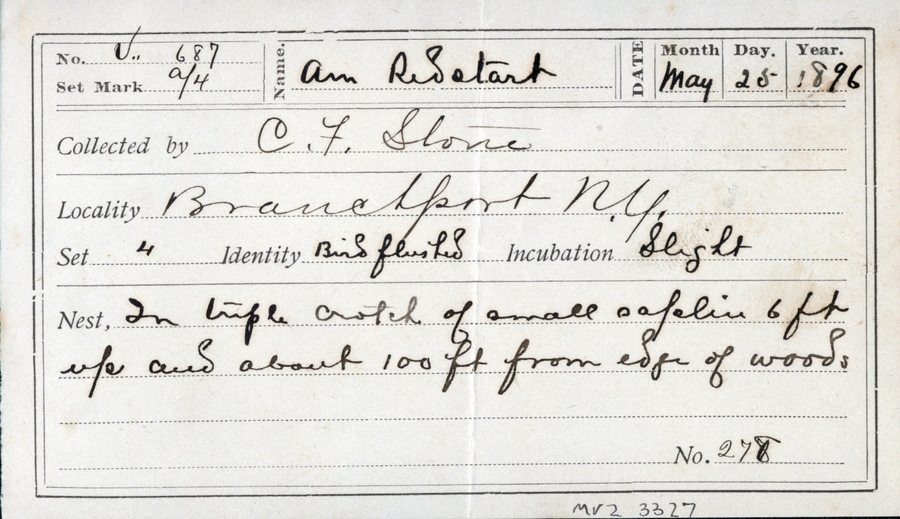 No. 687 Name. Am Redstart DATE Month Day. Year.
Set Mark a/4 May 25 1896
Collected by C. F. Stone
Locality Branchport N.Y.
Set 4 Identity Bird flushed Incubation Slight
Nest, In triple crotch of small saplin 6 ft
up and about 100 ft from edge of woods
No.
MVZ 3327